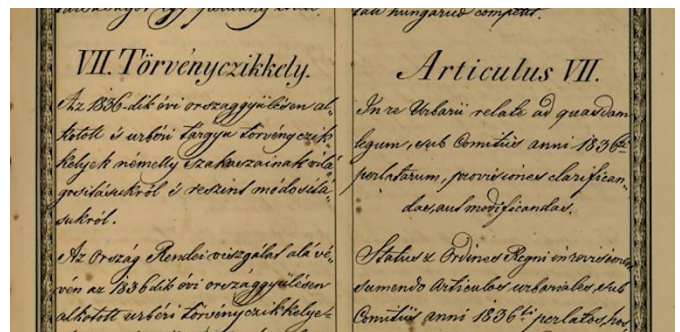 VII. Törvényczikkely.
Az 1836-dik évi országgyülésen al-
kotott s urbéri tárgyu törvényczik-
kelyek némelly szakaszainak vilá-
gositásukról s reszint módositá-
sukról.
Az Ország Rendei vizsgálat alá vé-
vén az 1836dik évi országgyülésen
alkotott urbéri törvényczikkelye-
tati hungarice composit.
Articulus VII.
In re Urbarii relate ad quasdam
legum, sub Comitiis anni 1836ti
perlatarum, provisiones clarifican-
das, aut modificandas.
Status & Ordines Regni in revisionem
sumendo Articulos urbariales, sub
Comitiis anni 1836ti perlatos, hos